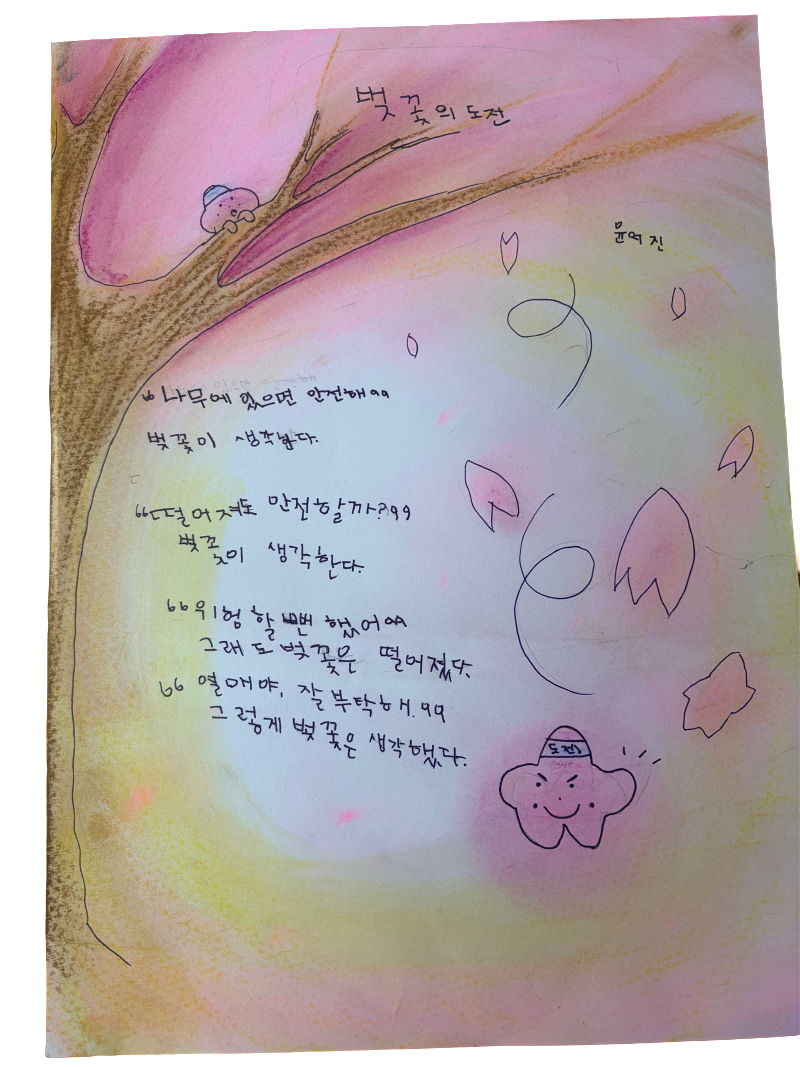 벚꽃의 도전
윤여진
“나무에 있으면 안전해”
벚꽃이 생각한다.
“떨어져도 안전할까?”
벚꽃이 생각한다.
“위험할 뻔 했어”
그래도 벚꽃은 떨어졌다.
“열매야, 잘 부탁해.”
그렇게 벚꽃은 생각했다.
도전!